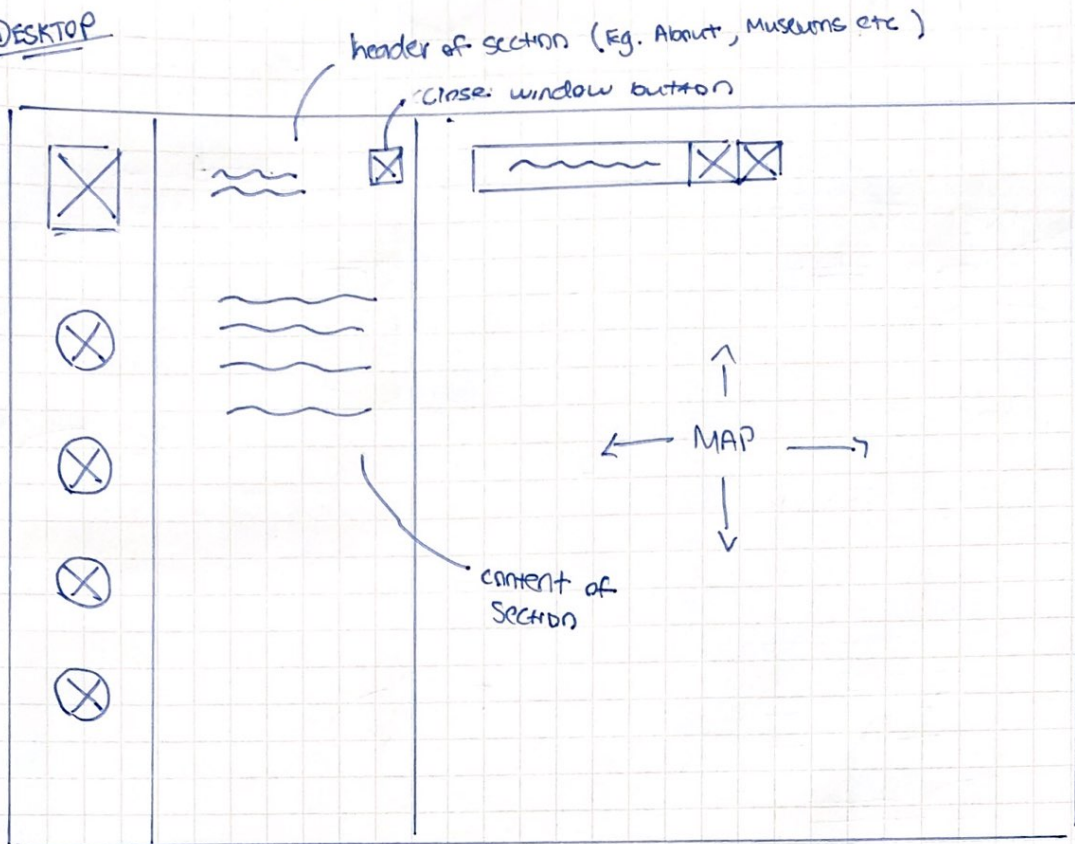 DESKTOP
header of section (Eg. About, Museums etc)
close window button
MAP
content of
section